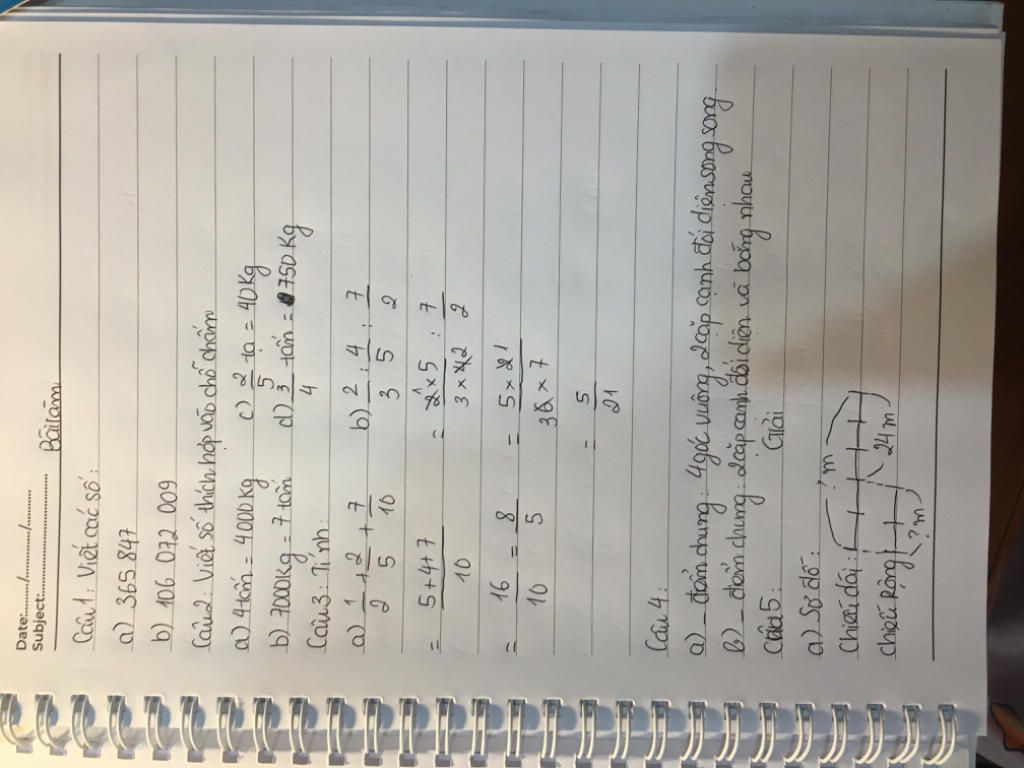 Date:......./......./.......
Subject:.......................
Bài làm
Câu 1: Viết các số:
a) 365 847
b) 106 072 009
Câu 2: Viết số thích hợp vào chỗ chấm
a) 4 tấn = 4000 kg c) 2/5 tạ = 40 kg
b) 7000 kg = 7 tấn d) 3/4 tấn = 750 kg
Câu 3: Tính:
a) 1/2 + 2/5 + 7/10 b) 2/3 : 4/5 : 7/2
= 5+4+7/10 = 2 1 × 5/3 × 4 2 : 7/2
= 16/10 = 8/5 = 5 × 2 1/3 6 × 7
= 5/21
Câu 4:
a) - điểm chung: 4 góc vuông, 2 cặp cạnh đối diện song song
b) - điểm chung: 2 cặp cạnh đối diện và bằng nhau
Câu 5: Giải
a) Sơ đồ: ? m
Chiều dài:
Chiều Rộng
? m 24 m